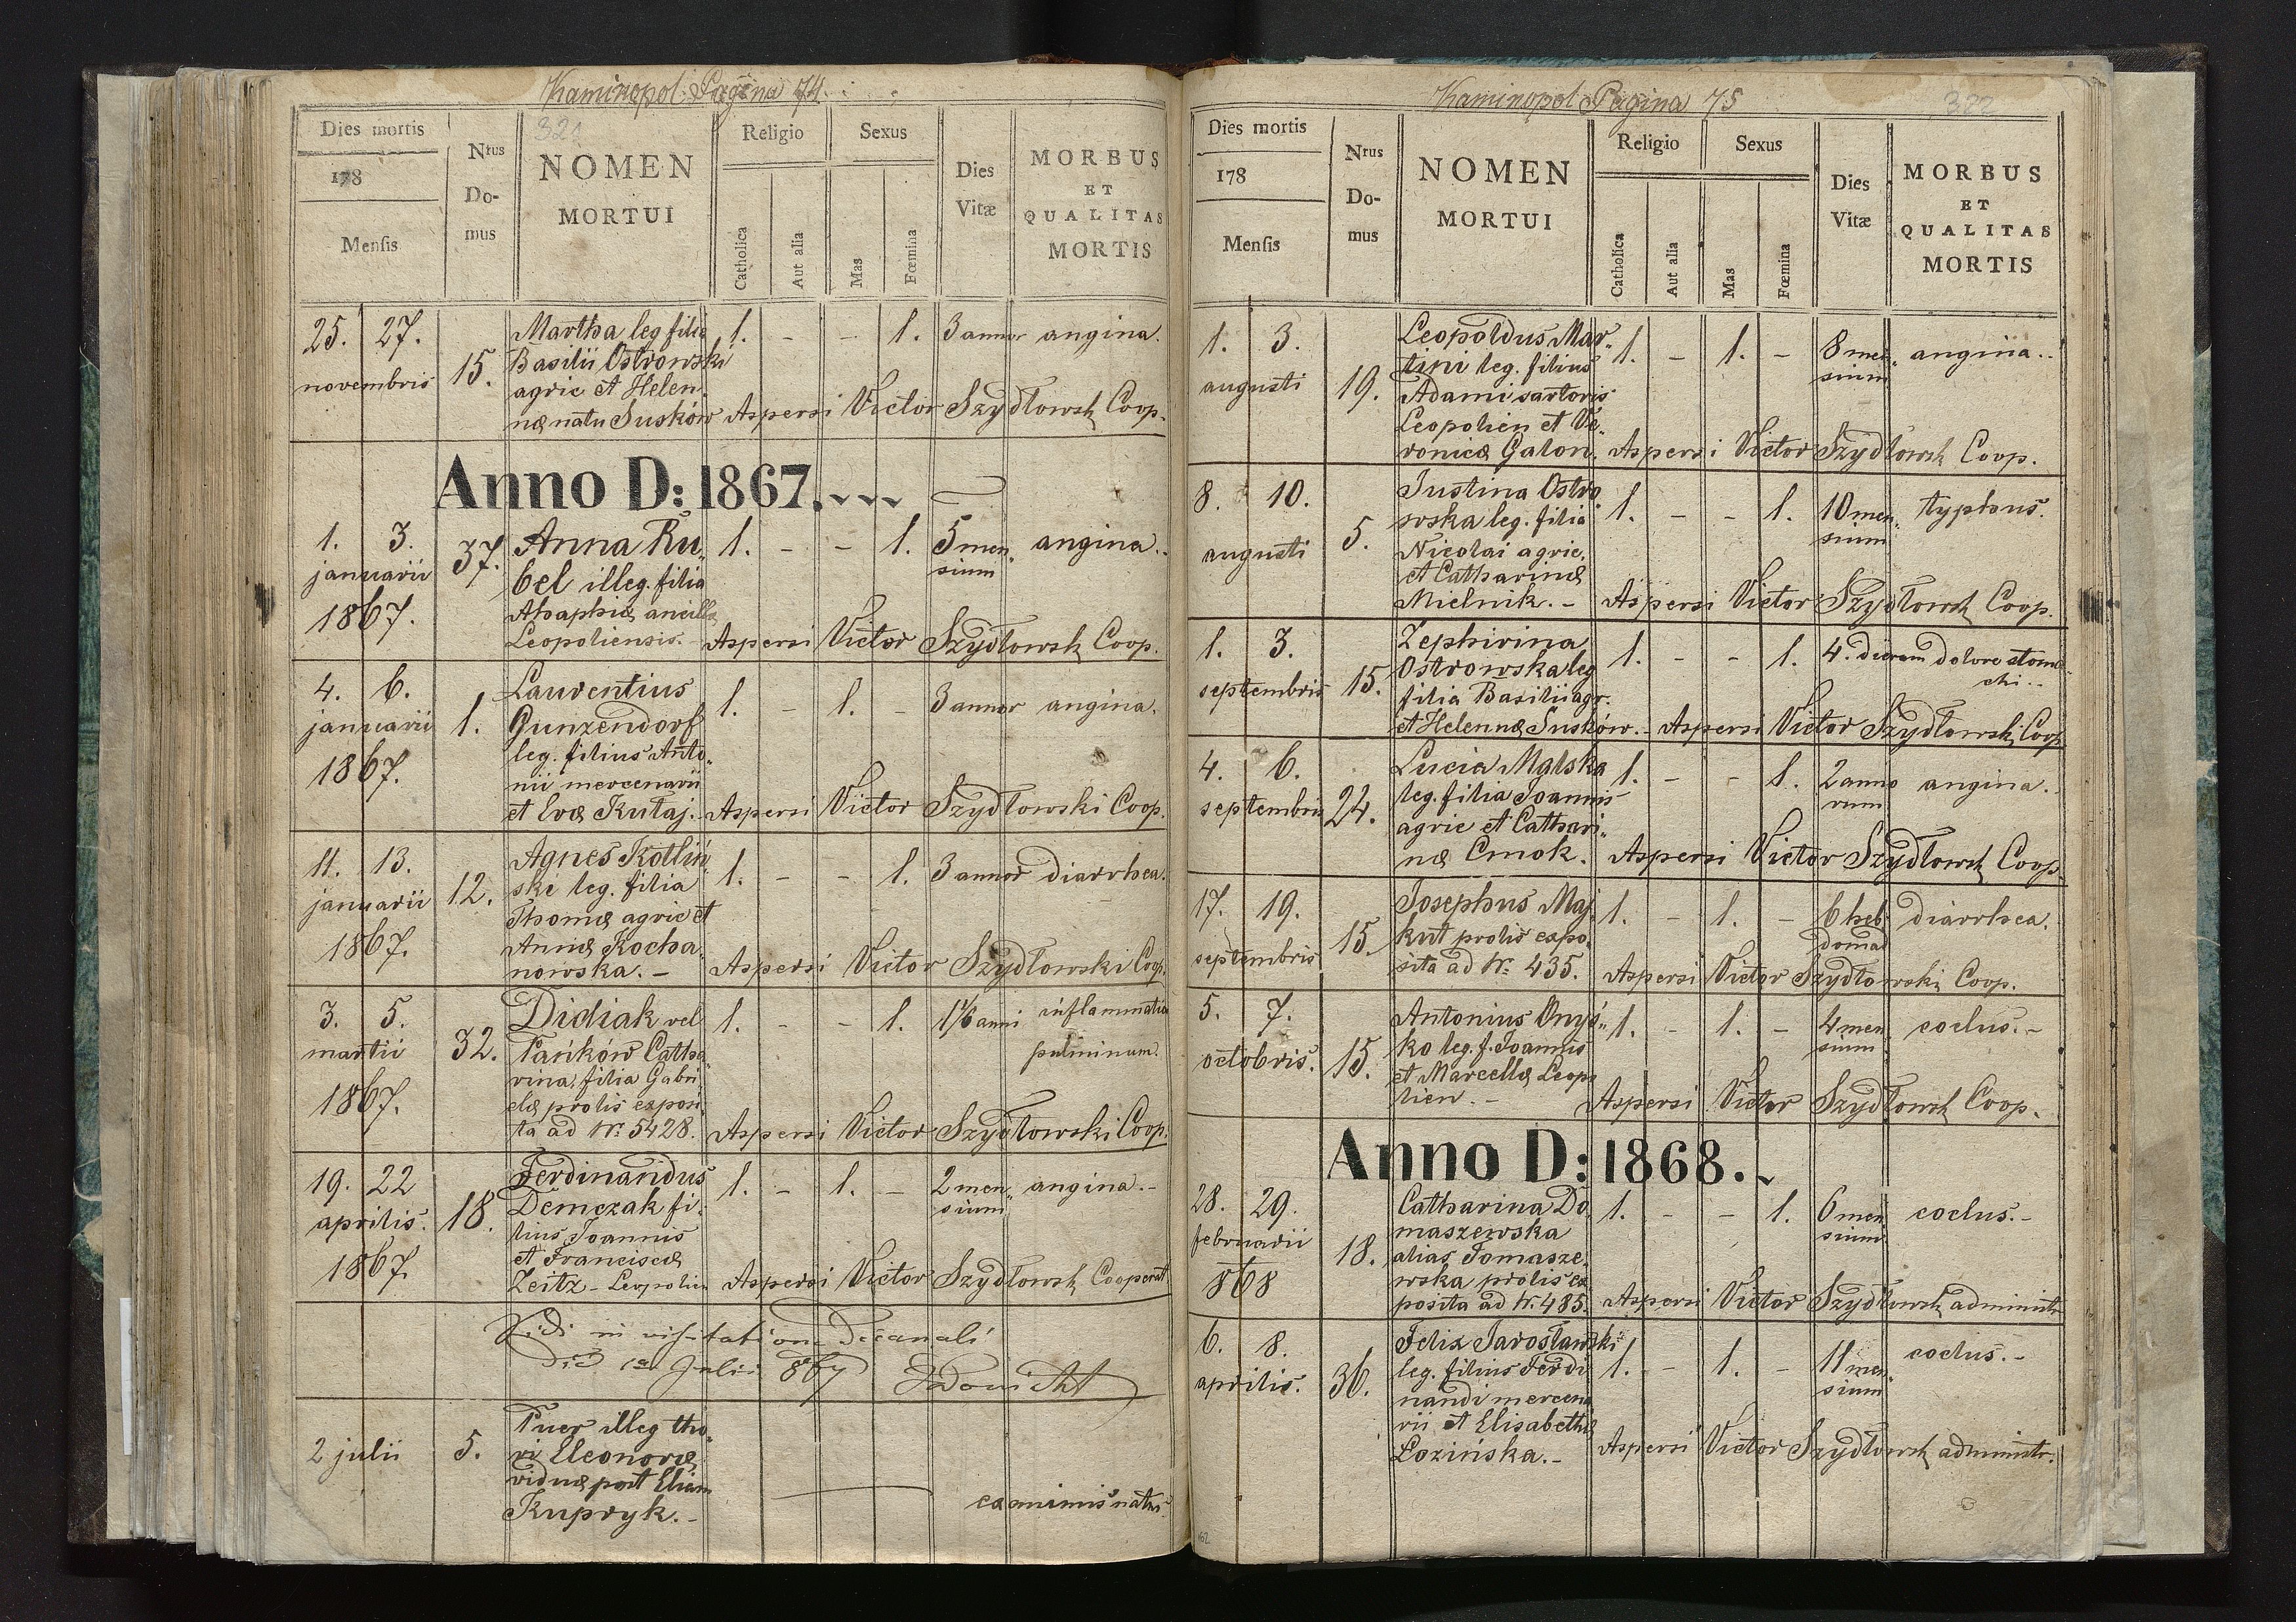 Kaminopol Pagina 74.
321
Dies mortis
178
Mensis
Nrus
Do-
mus
NOMEN
MORTUI
Religio
Catholica
Aut alia
Sexus
Mas
Fœmina
Dies
Vitæ
MORBUS
ET
QUALITAS
MORTIS
25. 27.
novembris
15.
Martha leg filia
Basilii Ostrowski
agric et Helen.
næ natu Susków
1. - - 1. 3 annor angina.
Aspersi Victor Szydłowsk Coop.
Anno D: 1867.
1. 3.
januarii
1867.
37.
Anna Ru„
bel illeg. filia
Ahaphiæ ancillæ
Leopoliensis.
1. - - 1. 5 men„ angina.
sium
Aspersi Victor Szydłowsk Coop.
4. 6.
januarii
1867.
1.
Laurentius
Gunzendorf
leg. filius Anto„
nii mercenarii
et Evæ Kutaj.
1. - 1. - 3 annor angina.
Aspersi Victor Szydłowski Coop.
11. 13.
januarii
1867.
12.
Agnes Kotliń
ski leg. filia
Thomæ agric et
Annæ Kocha„
nowska. -
1. - - 1. 3 annor diarrhea.
Aspersi Victor Szydłowski Coop.
3. 5.
martii
1867.
32.
Didiak vel
Pańków Catha„
rina, filia Gabri„
elæ prolis exposi„
ta ad Nr. 5428.
1. - - 1. 1 1/6 anni inflammatio
pulminum.
Aspersi Victor Szydłowski Coop.
19. 22
aprilis.
1867.
18.
Ferdinandus
Demczak fi„
lius Joannis
et Franciscæ
Zeitz - Leopolien
1. - 1. - 2 men„ angina. -
sium
Aspersi Victor Szydłowsk Cooperat
Vidi in visitatione Decanali
die 12 Julii 867
2 julii
5.
Puer illeg tho„
ri Eleonoræ
viduæ post Eliam
Kupryk. -
exanimis natus.
Kaminopol Pagina 75
322
Dies mortis
178
Mensis
Nrus
Do-
mus
NOMEN
MORTUI
Religio
Catholica
Aut alia
Sexus
Mas
Fœmina
Dies
Vitæ
MORBUS
ET
QUALITAS
MORTIS
1. 3.
augusti
19.
Leopoldus Mar„
tini leg. filius
Adami sartoris
Leopolien et Ve„
ronicæ Galon.
1. - 1. - 8 men„ angina..
sium
Aspersi Victor Szydłowsk Coop.
8. 10.
augusti
5.
Justina Ostro
wska leg. filia
Nicolai agric.
et Catharinæ
Mielnik. -
1. - - 1. 10 men„ typhus.
sium
Aspersi Victor Szydłowsk Coop.
1. 3.
septembris
15.
Zephirina
Ostrowska leg
filia Basilii agr.
et Helennæ Susków. -
1. - - 1. 4. dierum dolore stoma
chi..
Aspersi Victor Szydłowsk Coop
4. 6.
septembris
24.
Lucia Malska
leg. filia Joannis
agric et Cathari„
næ Cmok.
1. - - 1. 2 anno angina.
rum
Aspersi Victor Szydłowsk Coop.
17. 19.
septembris
15.
Josephus Maj
kut prolis expo„
sita ad Nr. 435.
1. - 1. - 6 heb„ diarrhea.
domad
Aspersi Victor Szydłowski Coop.
5. 7.
octobris.
15.
Antonius Onyś„
ko leg. f. Joannis
et Marcellæ Leopo
lien. -
1. - 1. - 4 men coclus. -
sium
Aspersi Victor Szydłowsk Coop.
Anno D: 1868.
28. 29.
februarii
868
18.
Catharina Do„
maszewska
alias Tomasze„
wska prolis ex
posita ad Nr. 485.
1. - - 1. 6 men coclus. -
sium
Aspersi Victor Szydłowsk administr
6. 8.
aprilis.
36.
Felix Jarosławski
leg. filius Ferdi
nandi mercena
rii et Elisabethæ
Łozińska. -
1. - 1. - 11 men„ coclus. -
sium
Aspersi Victor Szydłowsk administr.
162